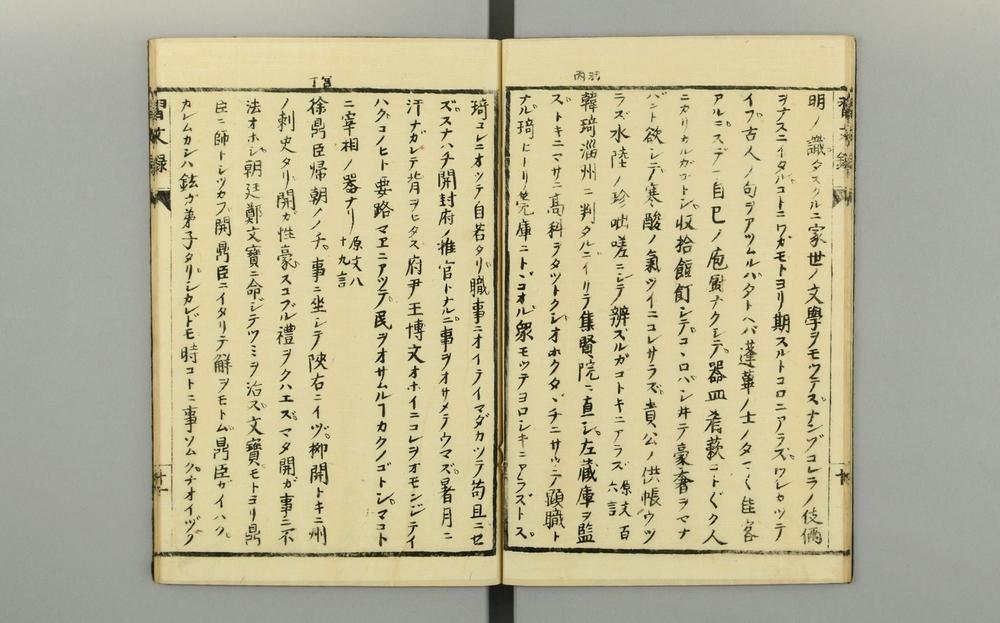 明ノ識タスクルニ家世ノ文學ヲモツテスナンゾコレラノ伎倆
ヲナスニイタルコトニワガモトヨリ期スルトコロニアラズワレカツテ
イフ古人ノ句ヲアツムルハタトヘバ蓬蓽ノ士ノタマ〱佳客
アルニスデニ自己ノ庖厨ナクシテ器皿肴蔌コト〲ク人
ニカリカルガゴトシ收拾餖飣シテコヽロバシ井テ豪奢ヲマナ
バント欲シテ寒酸ノ氣ツイニコレサラズ貴公ノ供帳ウツ
ラズ水陸ノ珍咄嗟ニシテ辨ズルガゴトキニアラズ 原文百六言
韓琦淄州ニ判タルニイリテ集賢院ニ直シ左蔵庫ヲ監
ストキニマサニ高科ヲタツトクシオホクタヾチニサツテ顕職ト
ナル琦ヒトリ筦庫ニトヾコオル衆モツテヨロシキニアラズトス
琦コレニオツテ自若タリ職事ニオイテイマダカツテ苟且ニセ
ズスナハチ開封府ノ推官トナルニ事ヲオサメテウマズ暑月ニ
汗ナガレテ背ヲヒタス府尹王博文オホイニコレヲオモンジテイ
ハクコノヒト要路マヱニアツテ民ヲオサムルヿカクノゴトシマコト
ニ宰相ノ器ナリ 原文八十九言
徐鼎臣帰朝ノノチ事ニ坐シテ陝右ニイヅ柳開トキニ州
ノ刺史タリ開ガ性豪スコブル禮ヲクハエズマタ開ガ事ニ不
法オホシ朝廷鄭文寶ニ命シテツミヲ治ス文寶モトヨリ鼎
臣ニ師トシツカフ開鼎臣ニイタリテ解ヲモトム鼎臣ガイハク
カレムカシハ鉉ガ弟子タリシカレドモ時コトニ事ソムク